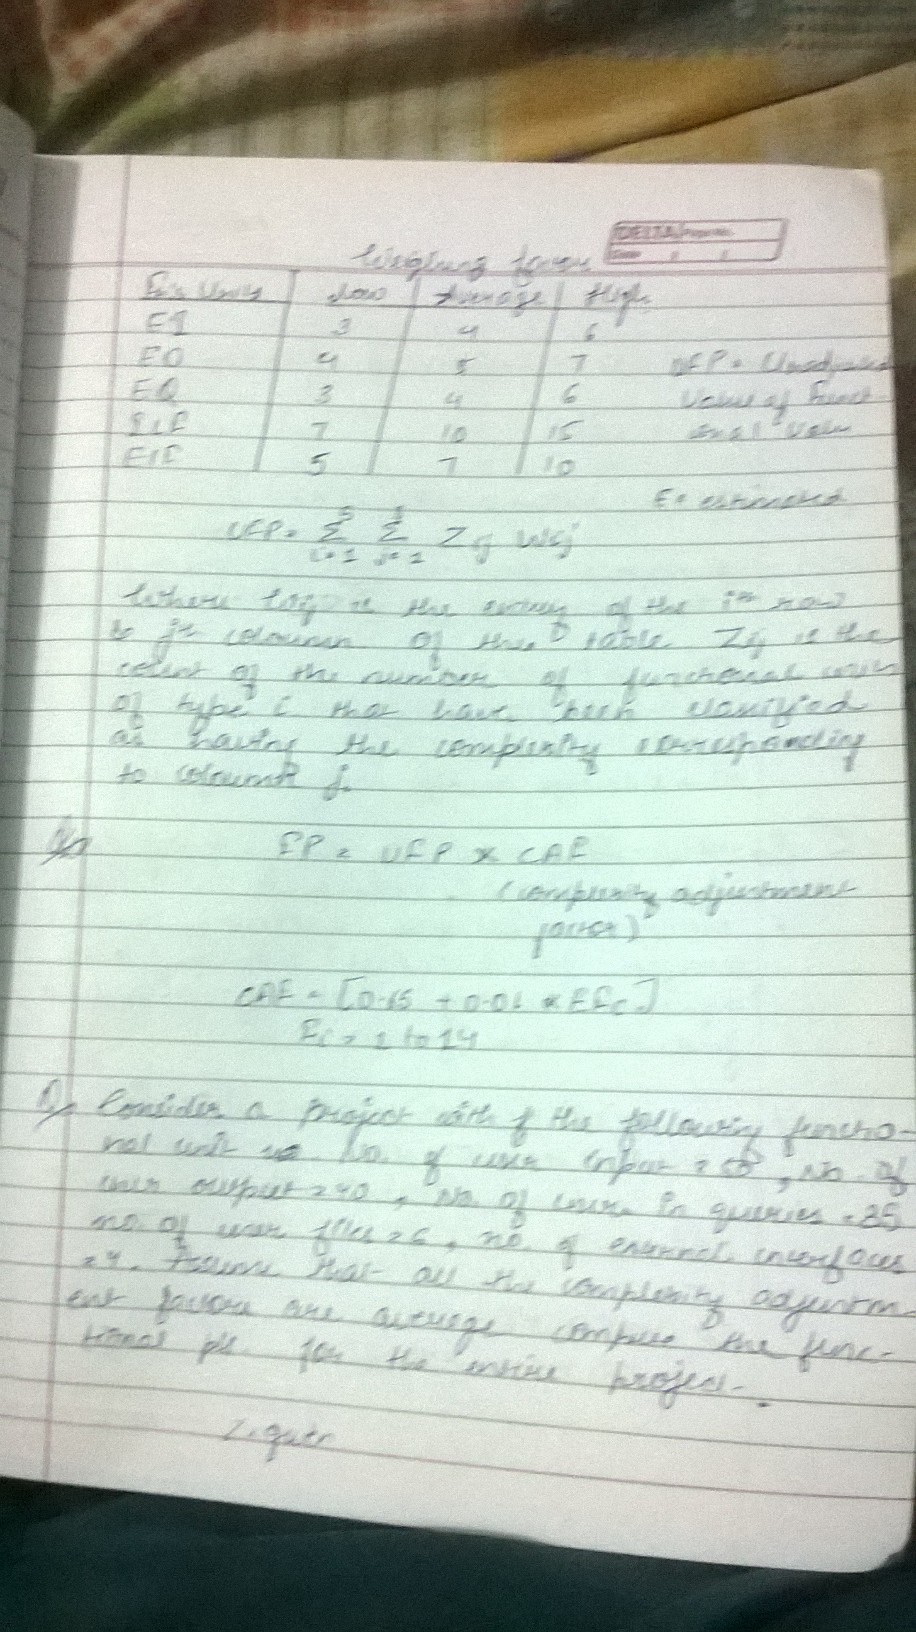 DELTA
Date
Low Average High
EI 3 4 6
EO 4 5 7 UFP =
EQ 3 4 6 Value of Funct
ILF 7 10 15 onal
EIF 5 7 10
E = estimated
UFP = Σ Σ Zij Wij
i=1 j=1
Where is the entry of the ith row
& jth coloumn of the table Zij is the
count of the number of functional
of type i that have been classified
as having the complexity corresponding
to coloumn j.
FP = UFP x CAF
(complexity adjustment
factor)
CAF = [0.65 + 0.01 x ΣFi]
Fi = 1 to 14
Q, Consider a project with the following functio-
nal unit No. of user input = 50, No. of
user output = 40, No. of user in queries = 35,
no. of user files = 6, no. of external interfaces
= 4. Assume that all the complexity adjustm
ent factors are average compute the func-
tional pt. for the entire project.